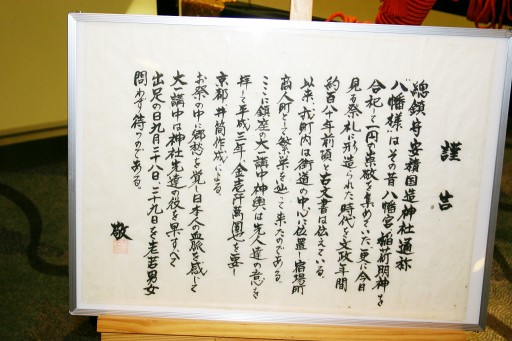 謹告
總鎮守安積国造神社通称
"八幡様"はその昔八幡宮稲荷明神を
合祀して一円の崇敬を集めていた。更に今日
見る祭礼に形造られた時代を文政年間
約百八十年前頃と古文書は伝えている。
以来、我町内は街道の中心に位置し宿場町
商人町として繁栄を辿って来たのである。
ここに鎮座の大一講中神輿は先人達の意心を
拝して平成三年、金壱阡萬圓也を要し
京都、井筒作成による。
お祭の中に郷愁を覚え日本人の血脈を感じて
大一講中は神社先達の役を果すべく
出足の日九月二十八日二十九日を老若男女
問わず待つのである。
敬